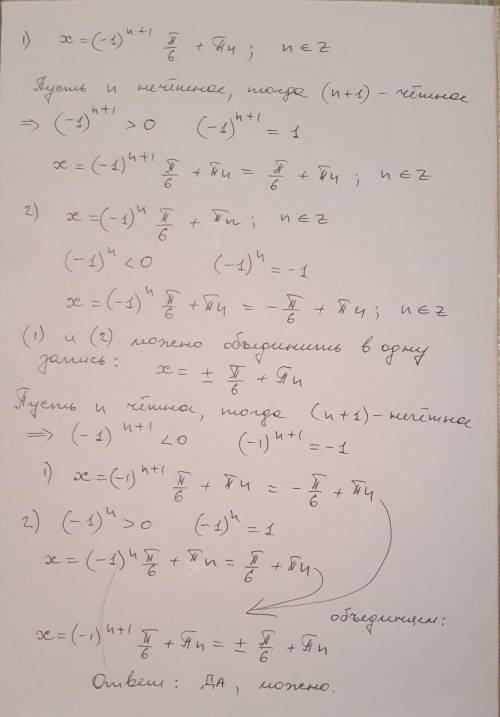 1) x = (-1)^{n+1} π/6 + πn ; n ∈ Z
Пусть n нечётное, тогда (n+1) - чётное
⇒ (-1)^{n+1} > 0 (-1)^{n+1} = 1
x = (-1)^{n+1} π/6 + πn = π/6 + πn ; n ∈ Z
2) x = (-1)^n π/6 + πn ; n ∈ Z
(-1)^n < 0 (-1)^n = -1
x = (-1)^n π/6 + πn = - π/6 + πn ; n ∈ Z
(1) и (2) можно объединить в одну
запись: x = ± π/6 + πn
Пусть n чётное, тогда (n+1) - нечётное
⇒ (-1)^{n+1} < 0 (-1)^{n+1} = -1
1) x = (-1)^{n+1} π/6 + πn = - π/6 + πn
2) (-1)^n > 0 (-1)^n = 1
x = (-1)^n π/6 + πn = π/6 + πn
объединим:
x = (-1)^{n+1} π/6 + πn = ± π/6 + πn
Ответ: ДА, можно.